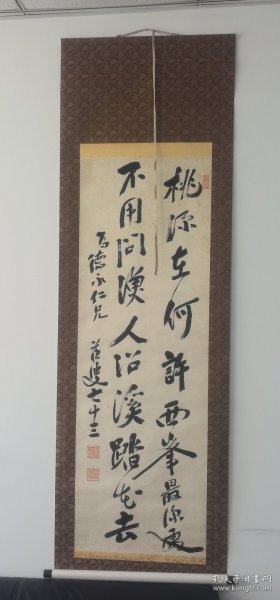 桃源在何許西峯最深處
不用問漁人沿溪踏花去
為德永仁兄
七十三
孔夫子旧书网
www.kongfz.com